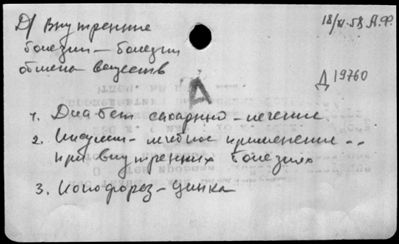 Д/ Внутренние
болезни - болезни
обмена веществ
18/XI-58 А.Ф.
Д 19760
Д
1. Диабет сахарный - лечение
2. Инсулин - лечебное применение - - 
при внутренних болезнях
3. Ионофорез - цинка